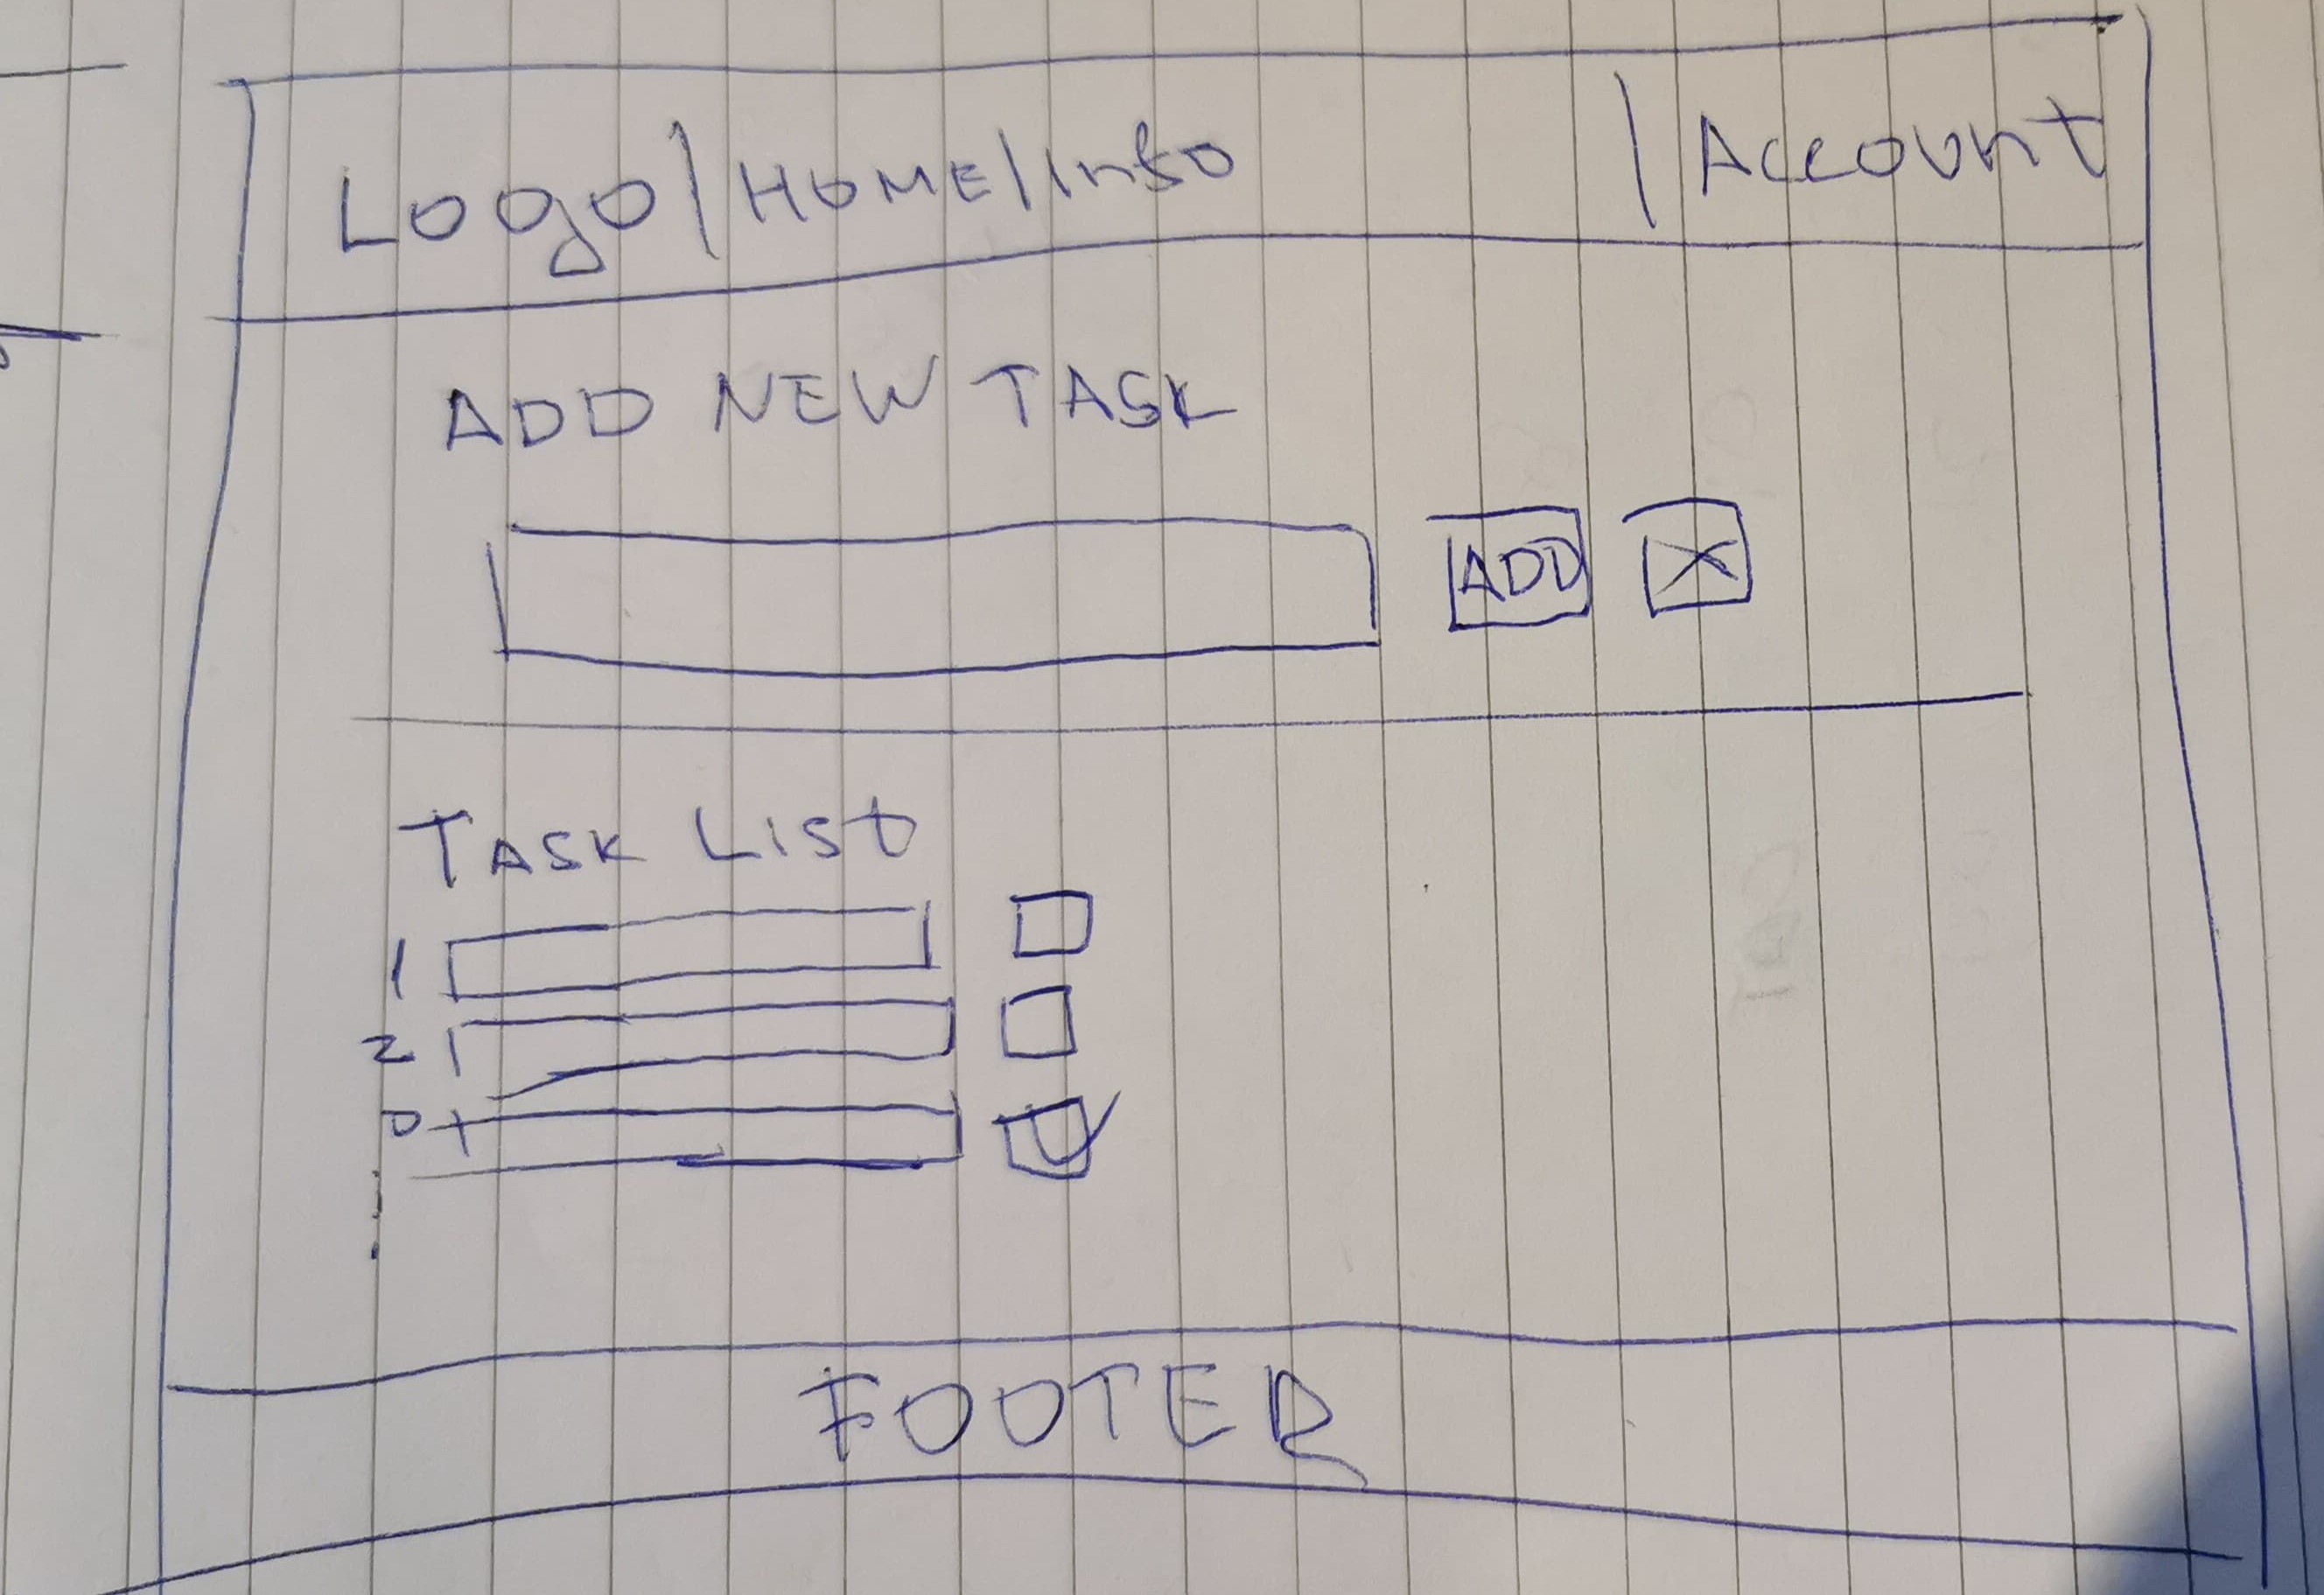 Logo | HOME | Info | Account
ADD NEW TASK
ADD X
TASK LIST
1
2